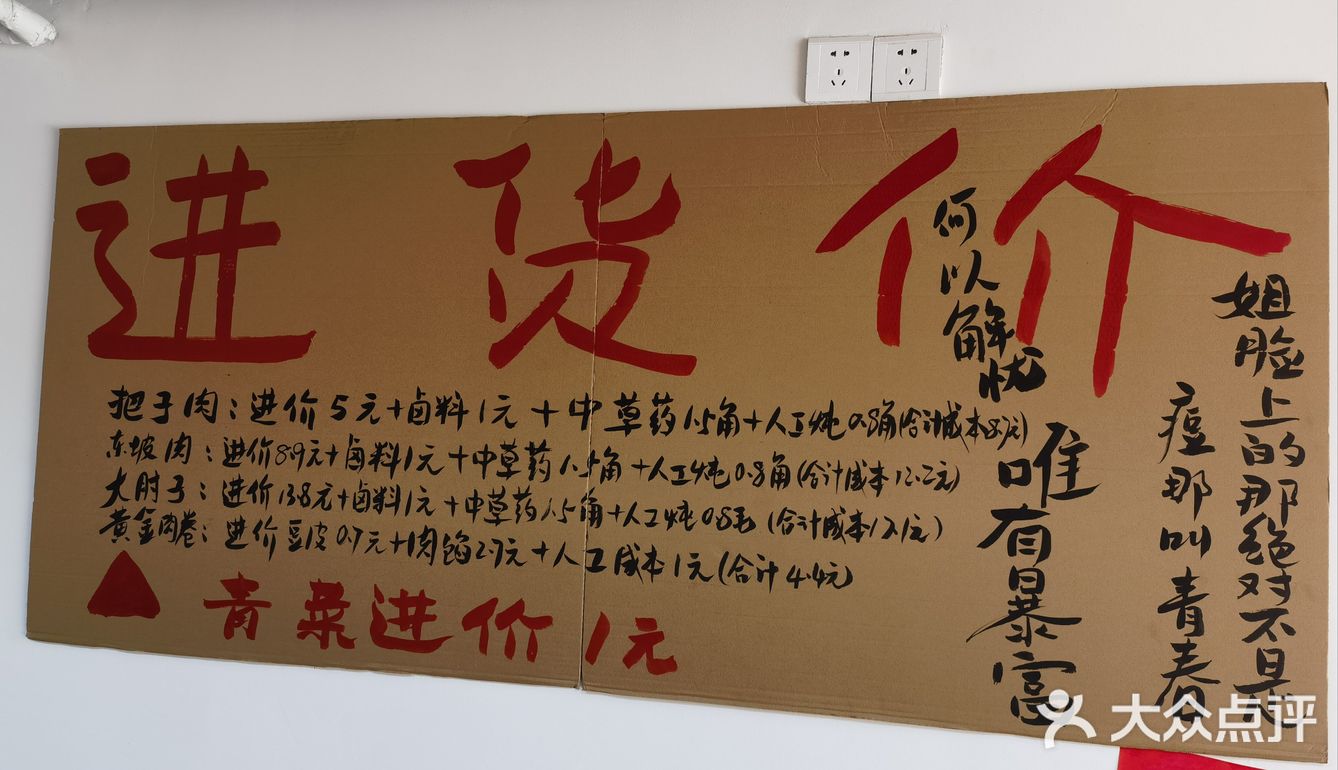 进货价
把子肉：进价5元+卤料1元+中草药1.5角+人工炖0.8角(合计成本8.3元)
东坡肉：进价8.9元+卤料1元+中草药1.5角+人工炖0.8角(合计成本12.2元)
大肘子：进价13.8元+卤料1元+中草药1.5角+人工炖0.8毛(合计成本17.1元)
黄金肉卷：进价豆皮0.7元+肉馅2.7元+人工成本1元(合计4.4元)
青菜进价1元
何以解忧
唯有日暴富
姐脸上的那绝对不是
痘那叫青春
大众点评